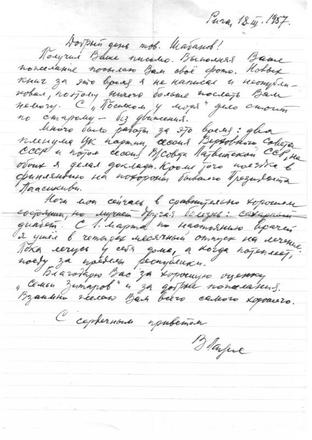 Рига, 18.III.1957.
Добрый день тов. Шабанов!
Получил Ваше письмо. Выполняя Ваше
пожелание посылаю Вам своё фото. Новых
книг за это время я не написал и неопубли-
ковал, поэтому ничего больше послать Вам
немогу. С „Посёлком у моря" дело стоит
по старому – без движения.
Много было работы за это время: два
пленума ЦК партии, сессия Верховного Совета
СССР и потом сессия В/Совета Латвийской ССР, на
обоих я делал доклады. Кроме того поездка в
Финляндию на похороны бывшего Президента
Паасикиви.
Ноги мои сейчас в сравнительно хорошем
состоянии, но мучает другая болезнь: сахарный
диабет. С 1. марта по настоянию врачей
я ушёл в четырех месячный отпуск на лечение.
Пока лечусь у себя дома, а когда потеплеет,
поеду за пределы республики.
Благодарю Вас за хорошую оценку
„Семьи Зитаров" и за добрые пожелания.
Взаимно желаю Вам всего самого хорошего.
С сердечным приветом
В Лацис